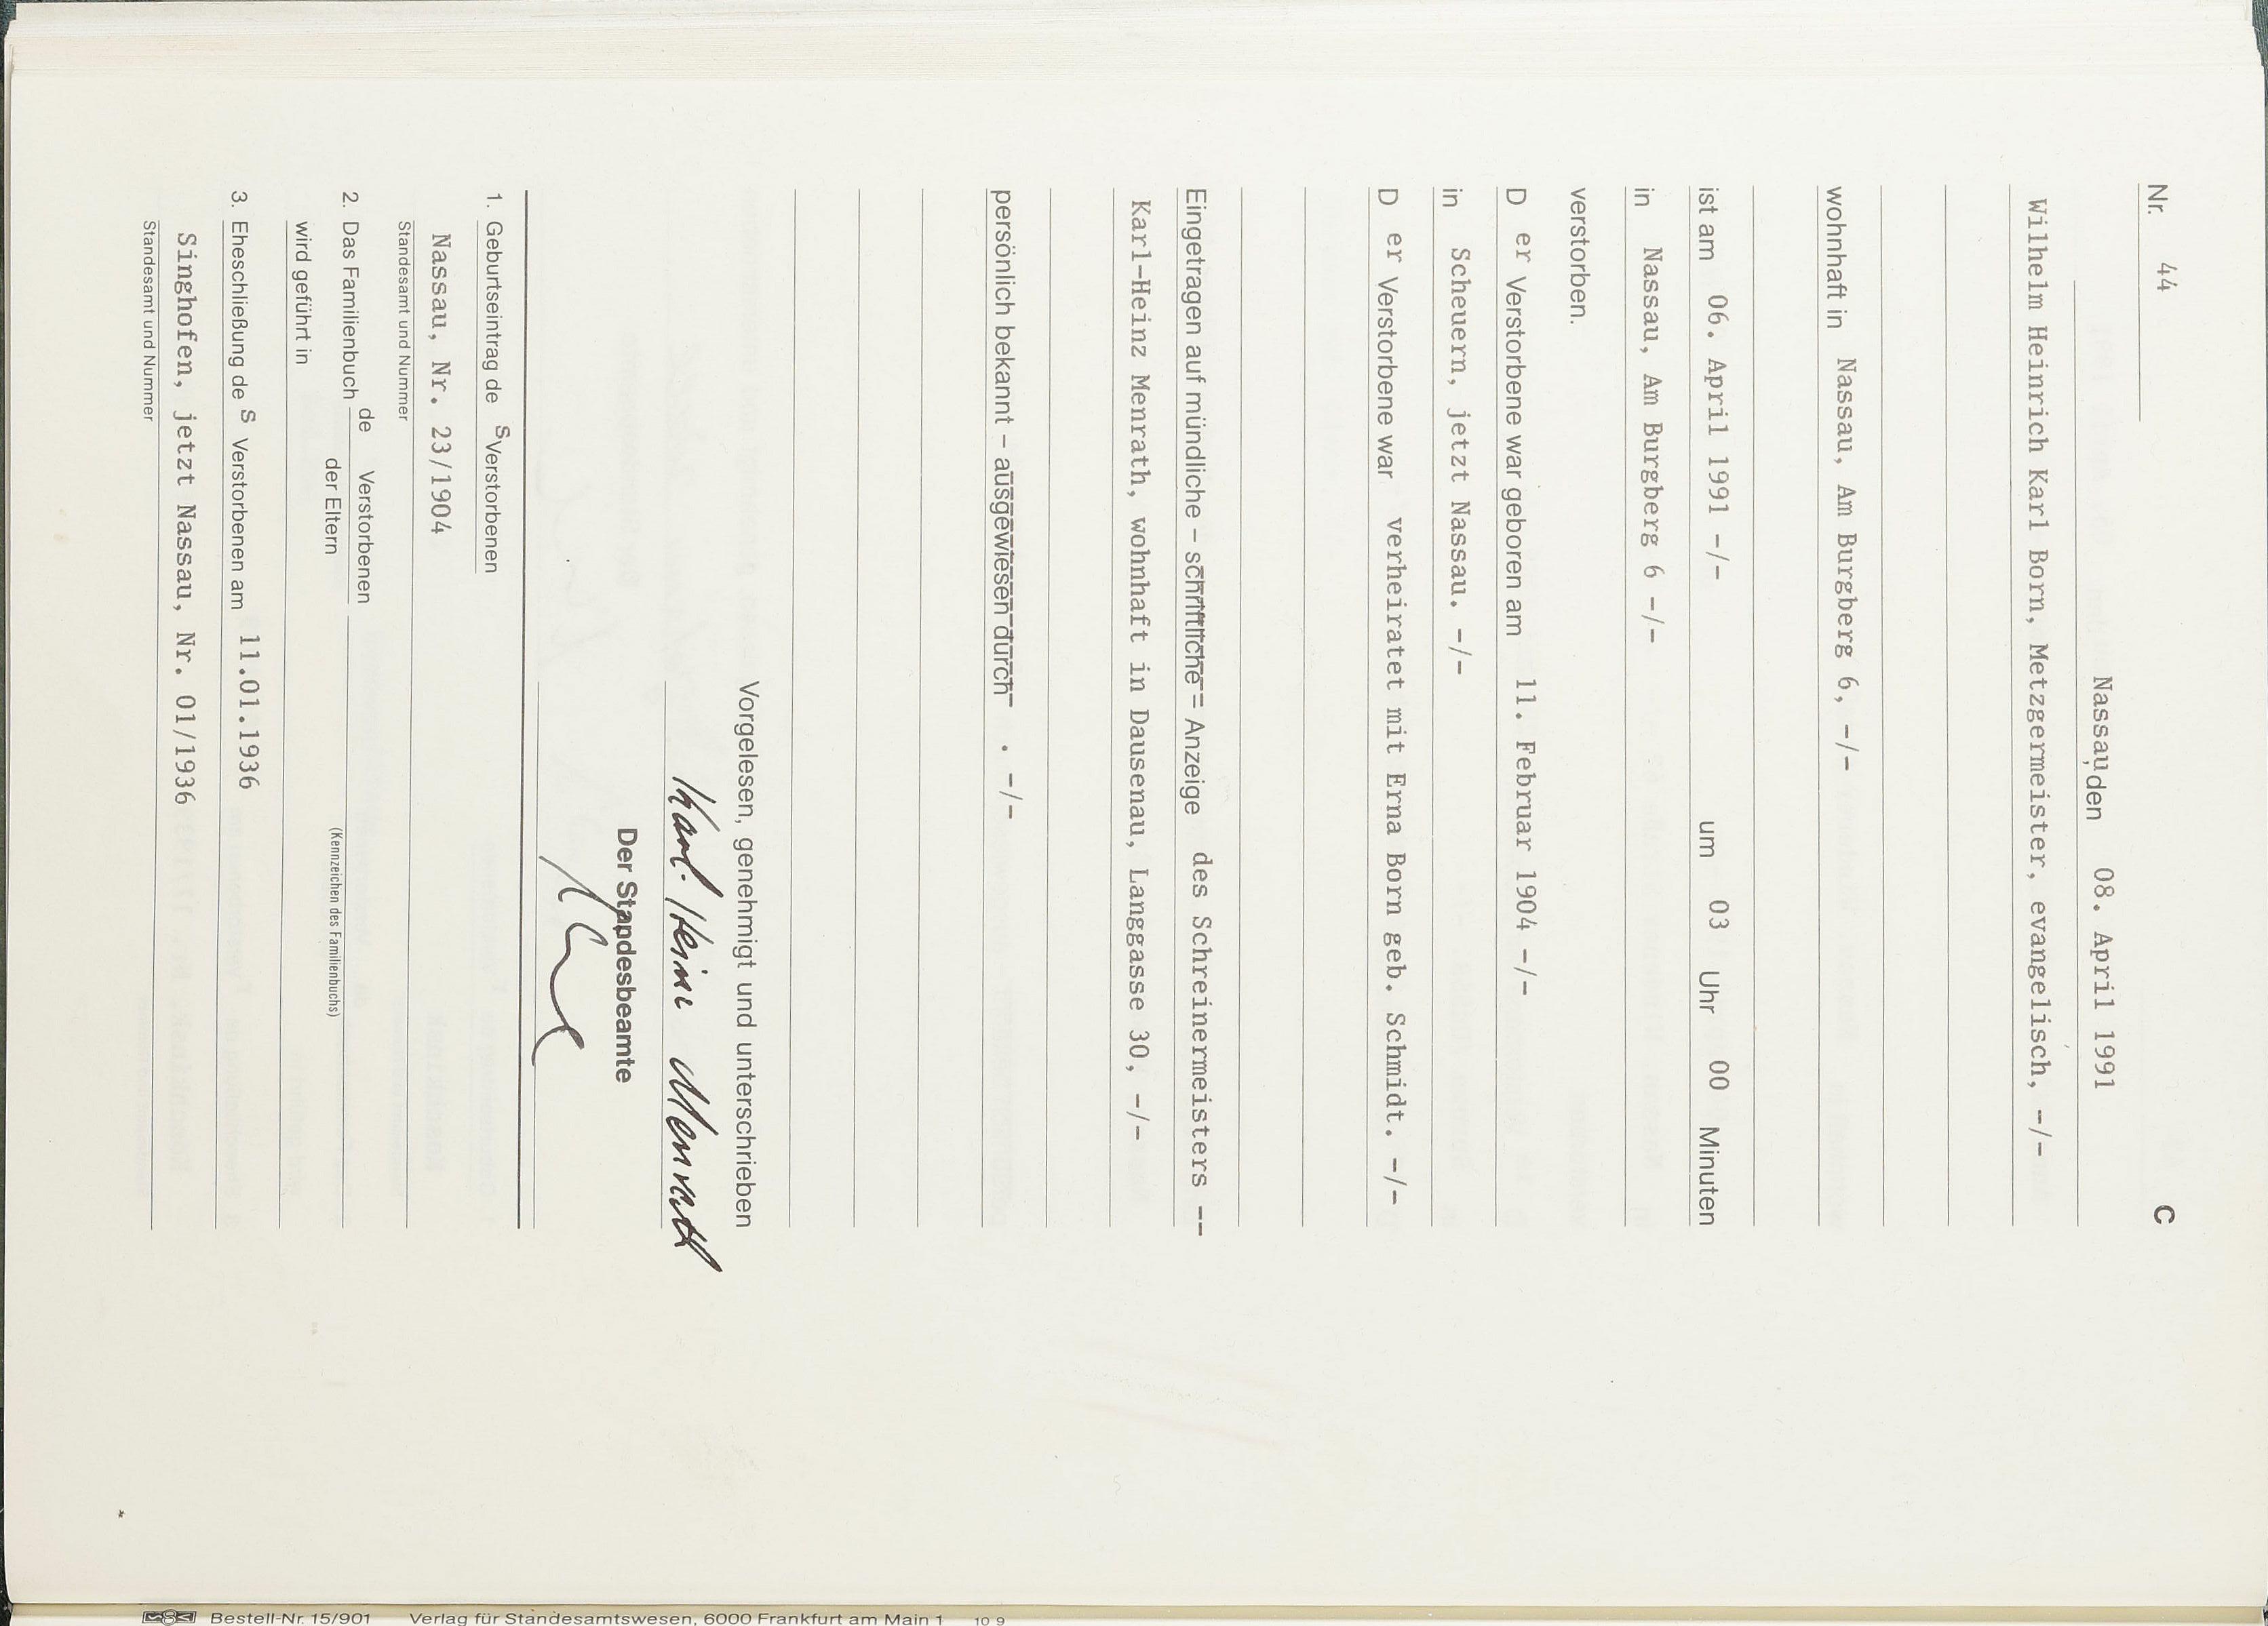 Nr. 44 C
Nassau, den 08. April 1991
Wilhelm Heinrich Karl Born, Metzgermeister, evangelisch, -/-
wohnhaft in Nassau, Am Burgberg 6, -/-
ist am 06. April 1991 -/- um 03 Uhr 00 Minuten
in Nassau, Am Burgberg 6 -/-
verstorben.
D er Verstorbene war geboren am 11. Februar 1904 -/-
in Scheuern, jetzt Nassau. -/-
D er Verstorbene war verheiratet mit Erna Born geb. Schmidt. -/-
Eingetragen auf mündliche – schriftliche – Anzeige des Schreinermeisters --
Karl-Heinz Menrath, wohnhaft in Dausenau, Langgasse 30, -/-
persönlich bekannt – ausgewiesen durch . -/-
Vorgelesen, genehmigt und unterschrieben
Karl-Heinz Menrath
Der Standesbeamte
1. Geburtseintrag de s Verstorbenen
Nassau, Nr. 23/1904
Standesamt und Nummer
2. Das Familienbuch de Verstorbenen
der Eltern (Kennzeichen des Familienbuchs)
wird geführt in
3. Eheschließung de s Verstorbenen am 11.01.1936
Singhofen, jetzt Nassau, Nr. 01/1936
Standesamt und Nummer
Bestell-Nr. 15/901 Verlag für Standesamtswesen, 6000 Frankfurt am Main 1 10 9